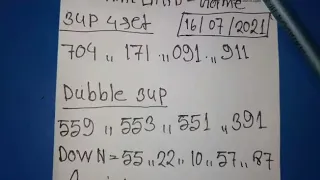 3UP 4set 16/07/2021
704 ,, 171 ,, 091 ,, 911
Dubble 3UP
559 ,, 553 ,, 551 ,, 391
DOWN = 55 ,, 22 ,, 10 ,, 57 ,, 87